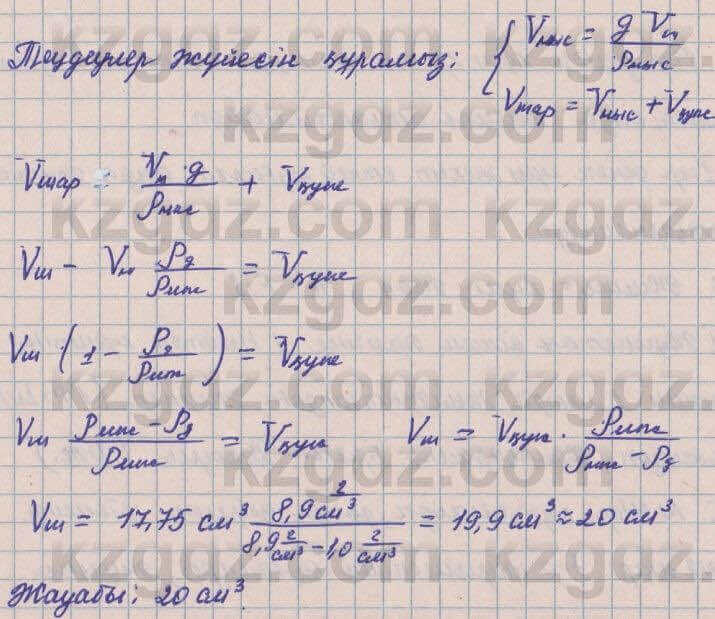 Теңдеулер жүйесін құрамыз: { Vмыс = g Vш / ρмыс
Vшар = Vмыс + Vқуыс
Vшар = Vш · g / ρмыс + Vқуыс
Vш − Vш ρg / ρмыс = Vқуыс
Vш · (1 − ρg / ρмыс) = Vқуыс
Vш (ρмыс − ρg) / ρмыс = Vқуыс Vш = Vқуыс · ρмыс / (ρмыс − ρg)
Vш = 17,75 см³ · 8,9 г/см³ / (8,9 г/см³ − 1,0 г/см³) = 19,9 см³ ≈ 20 см³
Жауабы: 20 см³.
kzgdz.com